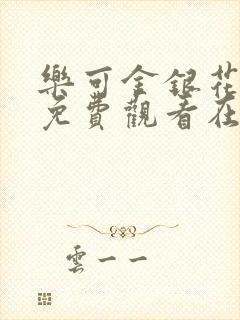 樂可金銀花
免費觀看在
雲一一